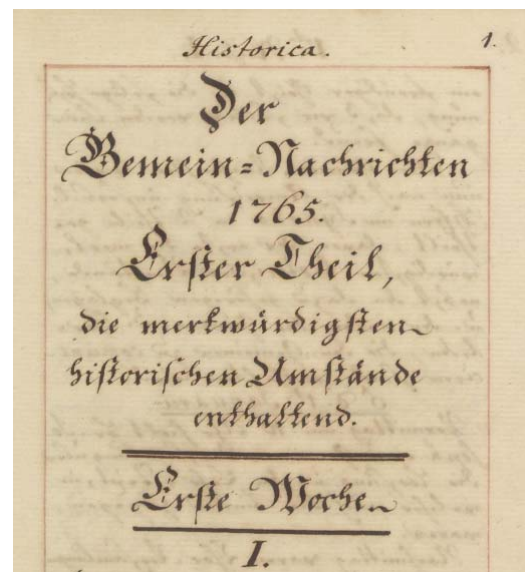 Historica. 1.
Der
Gemein=Nachrichten
1765.
Erster Theil,
die merkwürdigsten
historischen Umstände
enthaltend.
Erste Woche.
I.